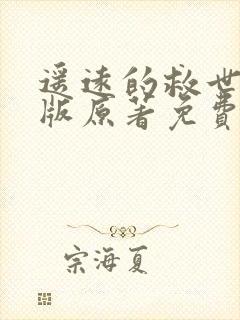 遥远的救世
版原著免費
宗海夏